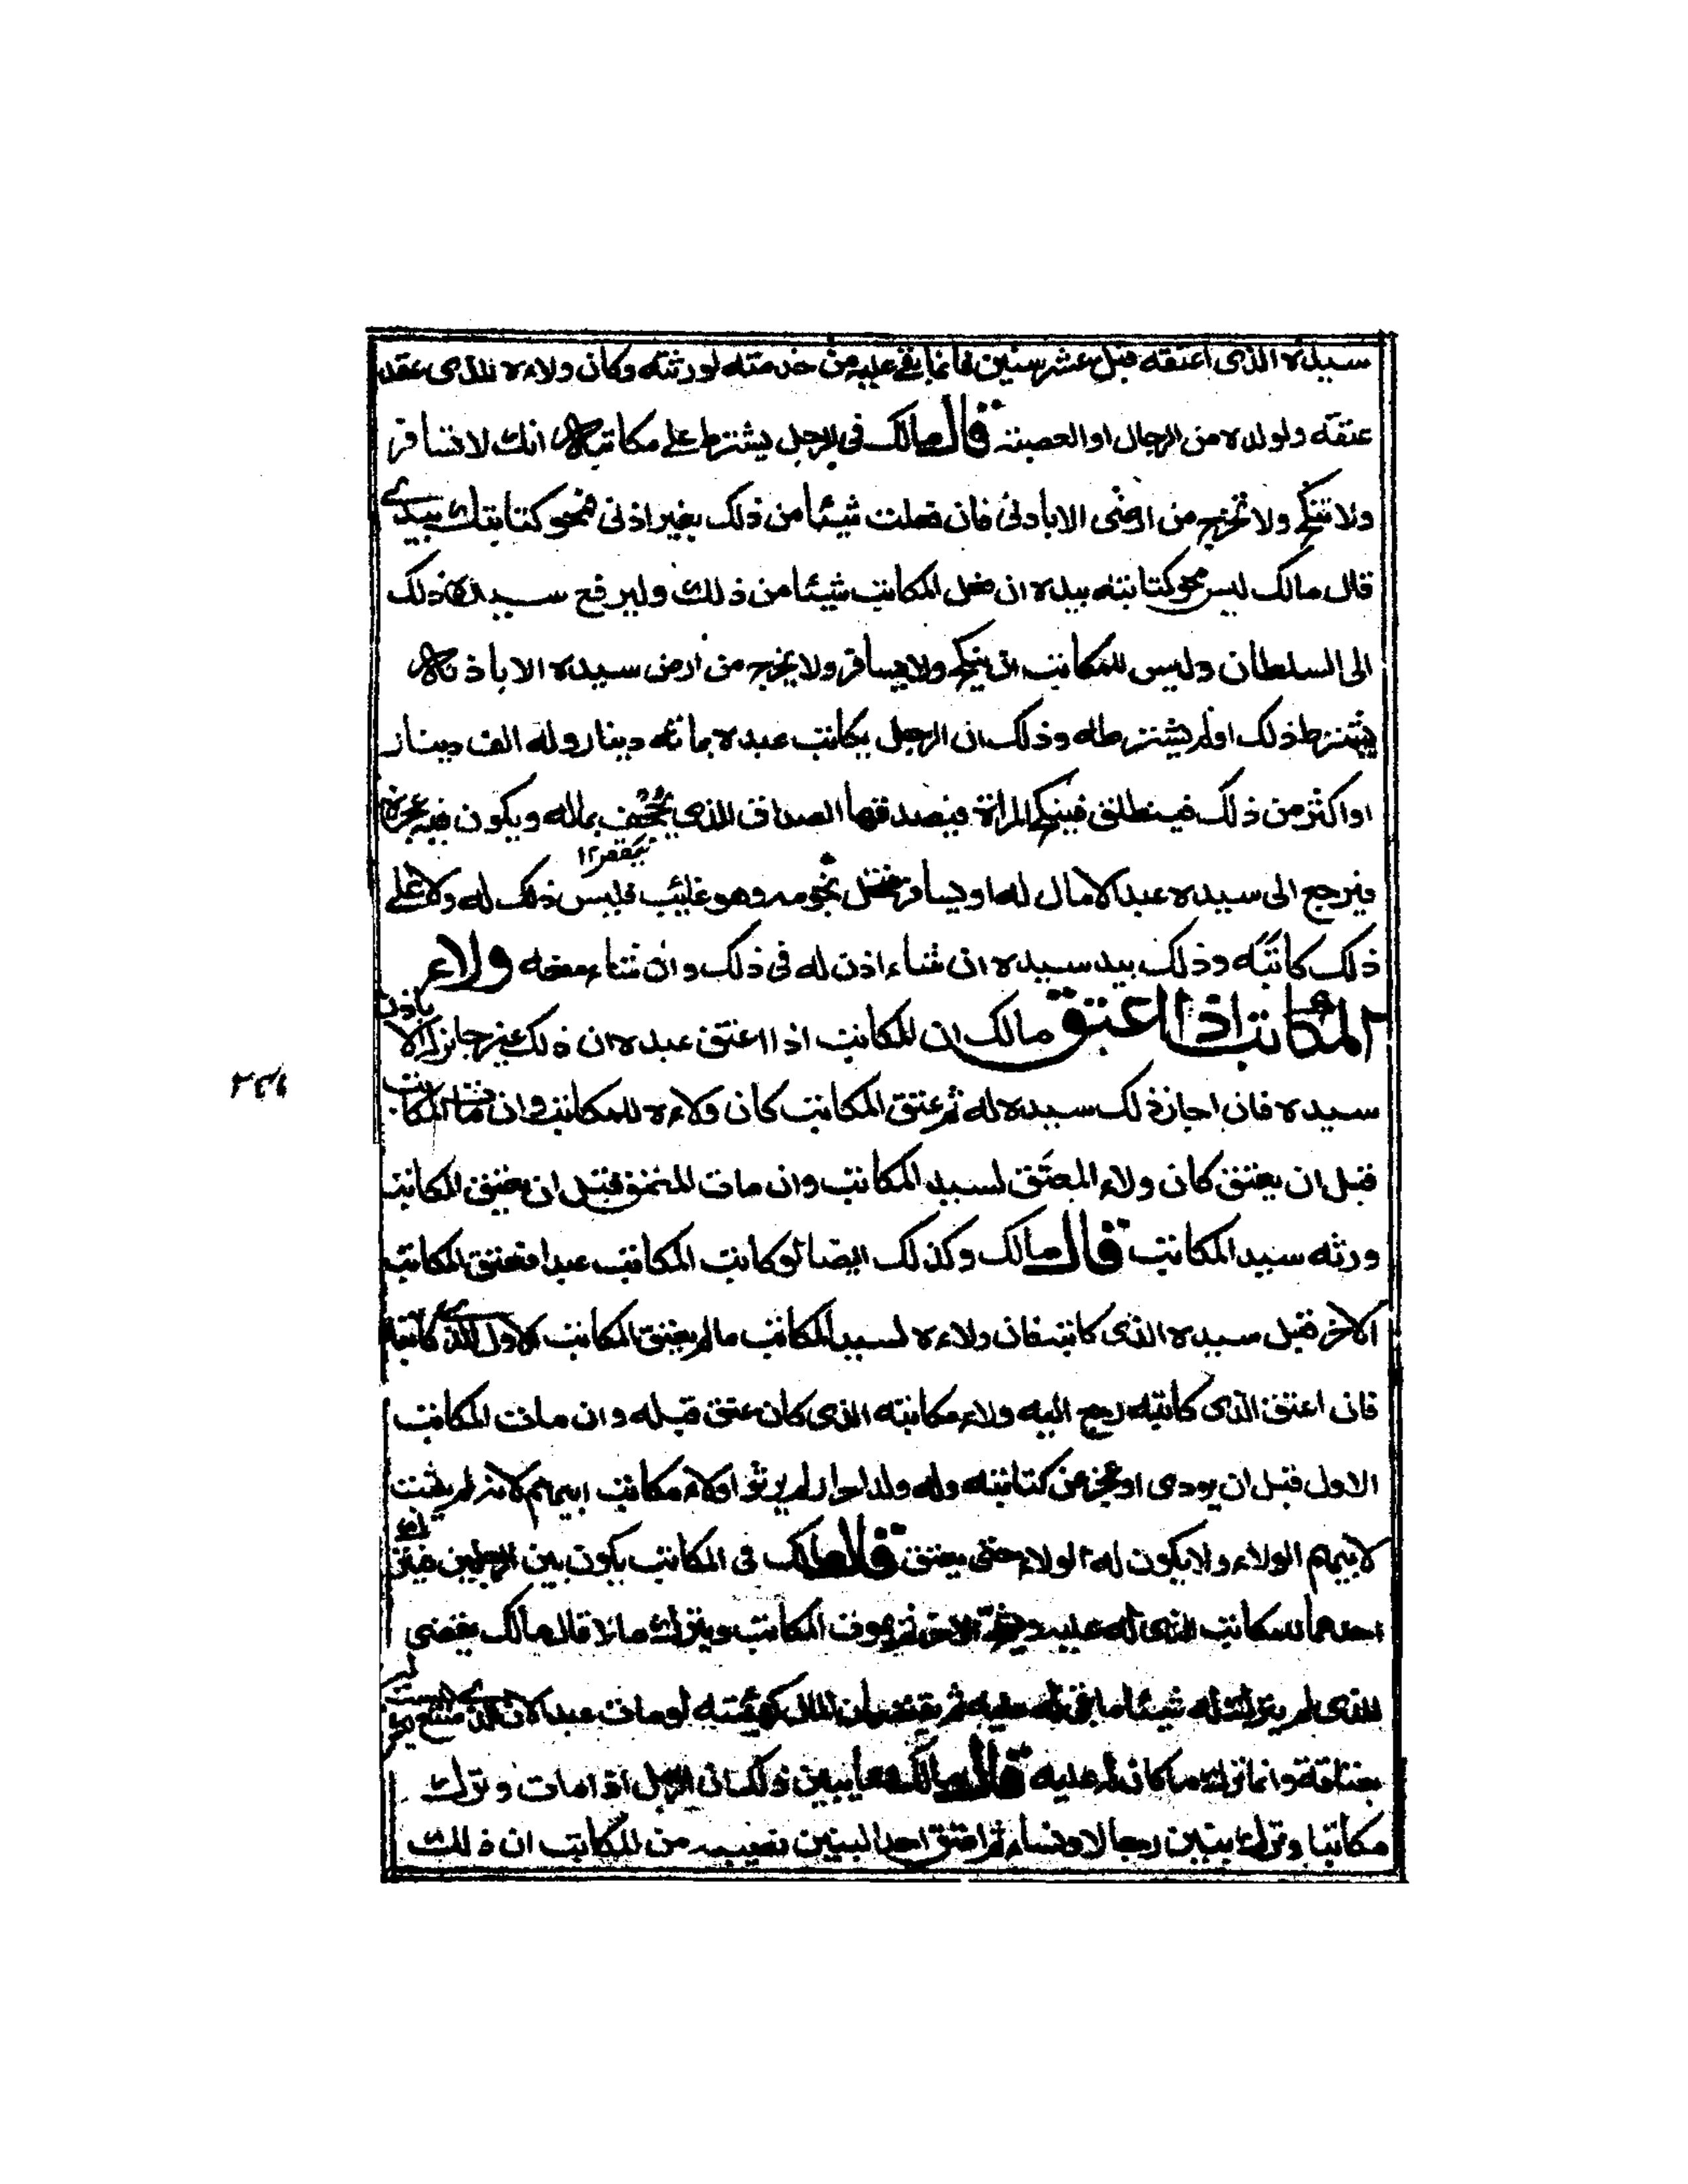 سيده الذى اعتقه قبل عشر سنين فانما بقى عليه من خدمته لورثته وكان ولاءه للذى عقد
عتقه ولولده من الرجال او العصبة قال مالك فى الرجل يشترط على مكاتبه انك لا تسافر
ولا تنكح ولا تخرج من ارضى الا باذنى فان فعلت شيئا من ذلك بغير اذنى فمحو كتابتك بيدى
قال مالك ليس محو كتابته بيده ان فعل المكاتب شيئا من ذلك وليرفع سيده ذلك
الى السلطان وليس للمكاتب ان ينكح ولا يسافر ولا يخرج من ارض سيده الا باذنه
يشترط ذلك اولم يشترطه وذلك ان الرجل يكاتب عبده بمائة دينار وله الف دينار
او اكثر من ذلك فينطلق فينكح المراة فيصدقها الصداق الذى يجحف بماله ويكون فيه عجزه
فيرجع الى سيده عبدا لا مال له او يسافر فتحل نجومه وهو غايب فليس ذلك له ولا على
ذلك كاتبه وذلك بيد سيده ان شاء اذن له فى ذلك وان شاء منعه ولاء
المكاتب اذا اعتق مالك ان المكاتب اذا اعتق عبده ان ذلك غير جائز له الا باذن
سيده فان اجاز ذلك سيده له ثم عتق المكاتب كان ولاءه للمكاتب وان مات المكاتب
قبل ان يعتق كان ولاء المعتق لسيد المكاتب وان مات المعتق قبل ان يعتق المكاتب
ورثه سيد المكاتب قال مالك وكذلك ايضا لو كاتب المكاتب عبدا فعتق المكاتب
الآخر قبل سيده الذى كاتبه فان ولاءه لسيد المكاتب مالم يعتق المكاتب الاول الذى كاتبه
فان اعتق الذى كاتبه رجع اليه ولاء مكاتبه الذى كان عتق قبله وان مات المكاتب
الاول قبل ان يودى او عجز عن كتابته وله ولد احرار لم يرثوا ولاء مكاتب ابيهم لانه لم يثبت
لابيهم الولاء ولا يكون له الولاء حتى يعتق قال مالك فى المكاتب يكون بين الرجلين فيترك
احدهما للمكاتب الذى له عليه ثم يموت المكاتب ويترك مالا قال مالك يقضى
الذى لم يترك له شيئا ما بقى له عليه ثم يقتسمان المال كهيئته لو مات عبدا لان الذى صنع ليس
بعتاقة وانما ترك ما كان له عليه قال مالك ومما يبين ذلك ان الرجل اذا مات وترك
مكاتبا وترك بنين رجالا ونساء ثم اعتق احد البنين نصيبه من المكاتب ان ذلك